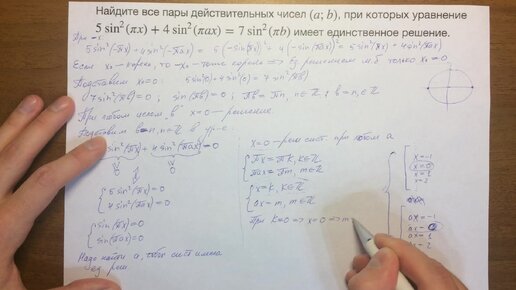 Найдите все пары действительных чисел (a; b), при которых уравнение
5 sin²(πx) + 4 sin²(πax) = 7 sin²(πb) имеет единственное решение.
При -x
5 sin²(-πx) + 4 sin²(-πax) = 5 (-sin(πx))² + 4 (-sin(πax))² = 5 sin²(πx) + 4 sin²(πax)
Если x₀ – корень, то -x₀ – тоже корень => Ед. решением м.б. только x₀ = 0
Подставим x₀=0: 5 sin²(0) + 4 sin²(0) = 7 sin²(πb)
7 sin²(πb) = 0; sin(πb) = 0; πb = πn, n∈Z; b = n, n∈Z
При любом целом b x=0 – решение
Подставим b=n, n∈Z в ур-е
sin²(πx) + 4 sin²(πax) = 0
5 sin²(πx) = 0
4 sin²(πax) = 0
sin(πx) = 0
sin(πax) = 0
Надо найти a, чтобы сист имела
ед. реш.
x=0 – реш сист при любом a
πx = πk, k∈Z
πax = πm, m∈Z
x = k, k∈Z
ax = m, m∈Z
При k=0 => x=0 => m
x = -1
x = 0
x = 1
x = 2
ax = -1
ax = 0
ax = 2